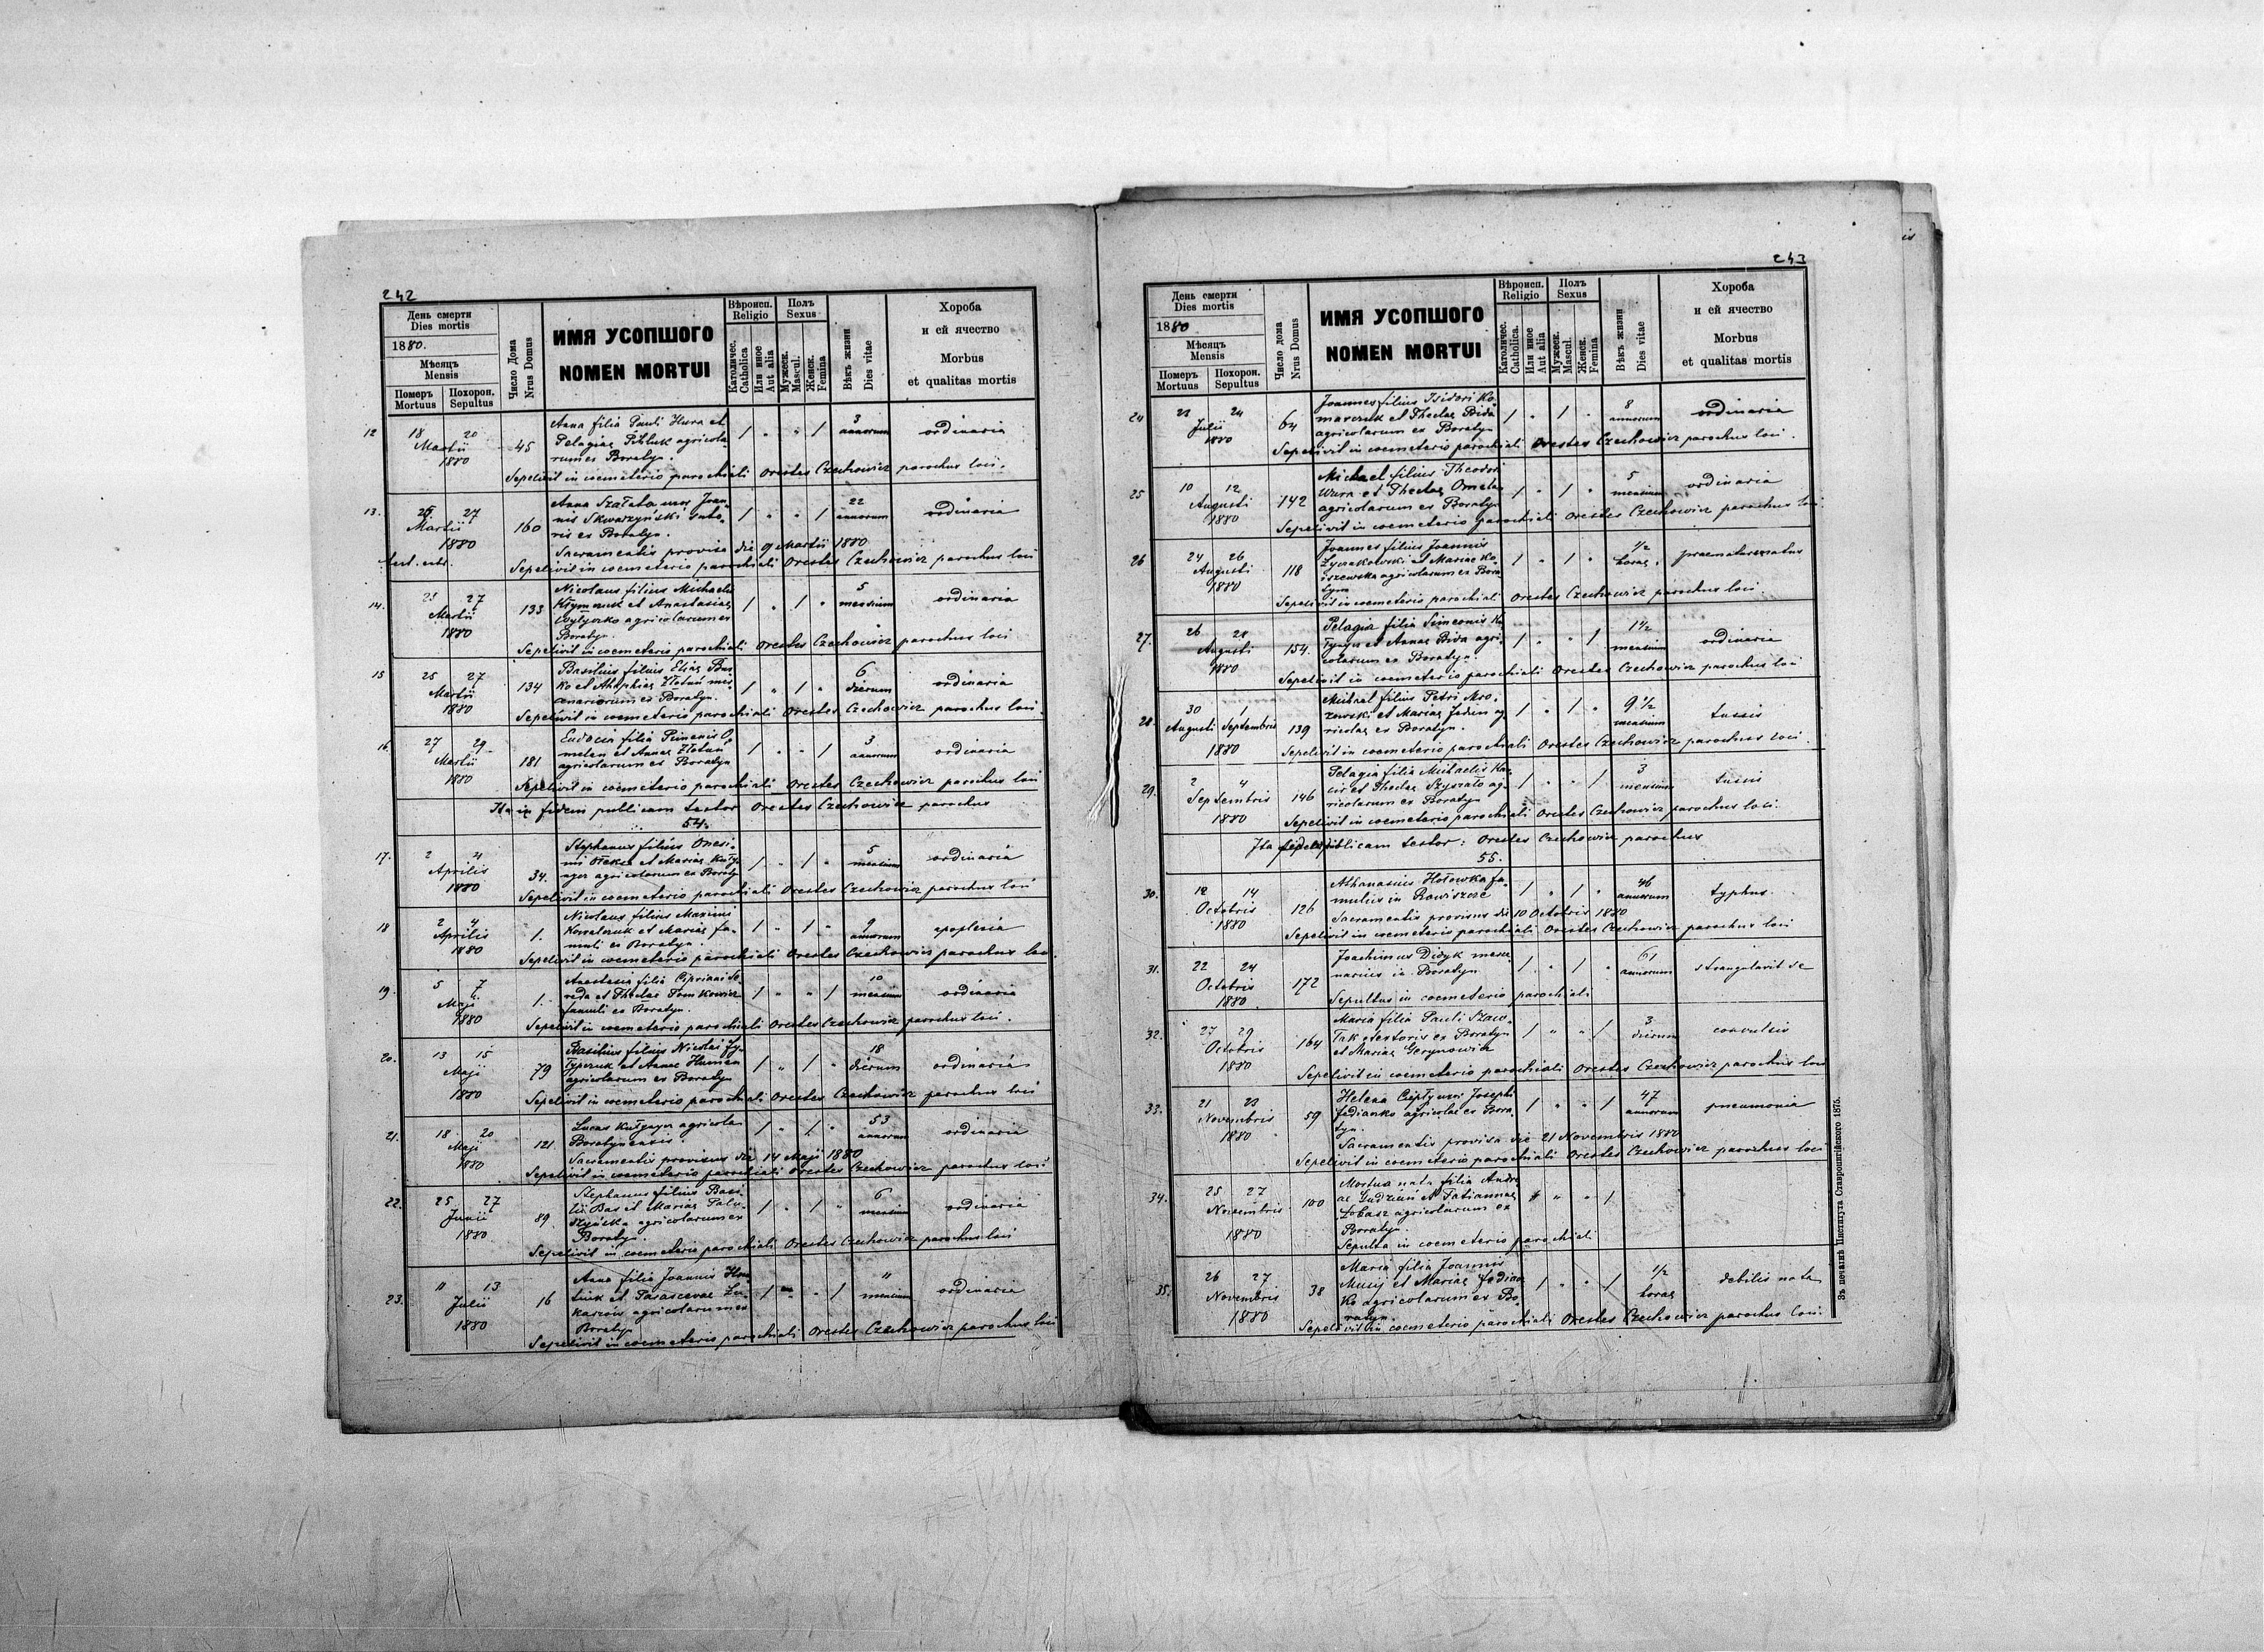 242
День смерти
Dies mortis
1880.
Мѣсяцъ
Mensis
Померъ
Mortuus
Похорон.
Sepultus
Число Дома
Nrus Domus
ИМЯ УСОПШОГО
NOMEN MORTUI
Вѣроисп.
Religio
Католичес.
Catholica
Или иное
Aut alia
Полъ
Sexus
Мужеск.
Mascul.
Женск.
Femina
Вѣкъ жизни
Dies vitae
Хороба
и ей ячество
Morbus
et qualitas mortis
12 18 20 Martii 1880 45
Anna filia Pauli Hura et
Pelagiae agricola-
rum ex Boratyn.
/ " " / 3 annorum ordinaria
Sepelivit in coemeterio parochiali Orestes Czechowicz parochus loci.
13. 25 27 Martii 1880 160
Anna Szałata uxor Joan-
nis Skwarzyński suto-
ris ex Boratyn.
/ " " / 22 annorum ordinaria
Sacramentis provisa die 9 Martii 1880
Sepelivit in coemeterio parochiali Orestes Czechowicz parochus loci
14. 25 27 Martii 1880 133
Nicolaus filius Michaelis
Klymczuk et Anastasiae
agricolarum ex
Boratyn.
/ " / " 5 mensium ordinaria
Sepelivit in coemeterio parochiali Orestes Czechowicz parochus loci
15 25 27 Martii 1880 134
Basilius filius Eliae Bus-
ko et Złotnii mer-
cenariorum ex Boratyn.
/ " / " 6 dierum ordinaria
Sepelivit in coemeterio parochiali Orestes Czechowicz parochus loci.
16. 27 29 Martii 1880 181
Eudocia filia Simeonis O-
melan et Annae Złotnii
agricolarum ex Boratyn
/ " " / 3 annorum ordinaria
Sepelivit in coemeterio parochiali Orestes Czechowicz parochus loci
Ita in fidem publicam testor Orestes Czechowicz parochus
54.
17. 2 4 Aprilis 1880 34.
Stephanus filius Onesi-
mi et Mariae
agricolarum ex Boraty
/ " / " 5 mensium ordinaria
Sepelivit in coemeterio parochiali Orestes Czechowicz parochus loci
18 2 4 Aprilis 1880 1.
Nicolaus filius Maximi
Kowalczuk et Mariae fa-
muli ex Boratyn.
/ " / " 9 annorum apoplexia
Sepelivit in coemeterio parochiali Orestes Czechowicz parochus loci.
19. 5 7 Maji 1880 1.
Anastasia filia Cipriani Se-
reda et Theclae Tomkowicz
famuli ex Boratyn.
/ " " / 10 mensium ordinaria
Sepelivit in coemeterio parochiali Orestes Czechowicz parochus loci.
20. 13 15 Maji 1880 79
Basilius filius Nicolai
et Annae Human
agricolarum ex Boratyn
/ " / " 18 dierum ordinaria
Sepelivit in coemeterio parochiali Orestes Czechowicz parochus loci
21. 18 20 Maji 1880 121
Lucas agricola
Boratynensis.
/ " / " 53 annorum ordinaria
Sacramentis provisus die 14 Maji 1880
Sepelivit in coemeterio parochiali Orestes Czechowicz parochus loci
22. 25 27 Junii 1880 89
Stephanus filius Basi-
lii Bas et Mariae Palu-
szyńska agricolarum ex
Boratyn.
/ " / " 6 mensium ordinaria
Sepelivit in coemeterio parochiali Orestes Czechowicz parochus loci
23. 11 13 Julii 1880 16
Anna filia Joannis
et Parascevae Łu-
kasiów agricolarum ex
Boratyn
/ " " / 11 mensium ordinaria
Sepelivit in coemeterio parochiali Orestes Czechowicz parochus loci
243
День смерти
Dies mortis
1880
Мѣсяцъ
Mensis
Померъ
Mortuus
Похорон.
Sepultus
Число дома
Nrus Domus
ИМЯ УСОПШОГО
NOMEN MORTUI
Вѣроисп.
Religio
Католичес.
Catholica.
Или иное
Aut alia
Полъ
Sexus
Мужеск.
Mascul.
Женск.
Femina
Вѣкъ жизни
Dies vitae
Хороба
и ей ячество
Morbus
et qualitas mortis
24 Julii 1880 64
Joannes filius Isidori Ko-
marczuk et Theclae Bida
agricolarum ex Boratyn
/ " / " 8 annorum ordinaria
Sepelivit in coemeterio parochiali Orestes Czechowicz parochus loci.
25 10 12 Augusti 1880 142
Michael filius Theodori
Wara et Theclae Omelan
agricolarum ex Boratyn
/ " / " 5 mensium ordinaria
Sepelivit in coemeterio parochiali Orestes Czechowicz parochus loci.
26 24 26 Augusti 1880 118
Joannes filius Joannis
Łyczakowski et Mariae Ko-
szewska agricolarum ex Bora-
tyn
/ " / " 1/2 horae. praematurenatus
Sepelivit in coemeterio parochiali Orestes Czechowicz parochus loci.
27. 26 28 Augusti 1880 154.
Pelagia filia Simeonis
et Annae Bida agri-
colarum ex Boratyn.
/ " " / 1 1/2 mensium ordinaria
Sepelivit in coemeterio parochiali Orestes Czechowicz parochus loci
28. 30 Augusti 1 Septembris 1880 139
Michael filius Petri Mro-
zowski et Mariae Fedun ag-
ricolas ex Boratyn.
/ " / " 9 1/2 mensium tussis
Sepelivit in coemeterio parochiali Orestes Czechowicz parochus loci.
29. 2 4 Septembris 1880 146
Pelagia filia Michaelis
et Theclae ag-
ricolarum ex Boratyn
/ " " / 3 mensium tussis
Sepelivit in coemeterio parochiali Orestes Czechowicz parochus loci.
Ita fidem publicam testor: Orestes Czechowicz parochus
55.
30. 12 14 Octobris 1880 126
Athanasius Hołowka fa-
mulus in
/ " / " 46 annorum typhus.
Sacramentis provisus die 10 Octobris 1880
Sepelivit in coemeterio parochiali Orestes Czechowicz parochus loci
31. 22 24 Octobris 1880 172
Joachimus Didyk merce-
narius in Boratyn
/ " / " 61 annorum strangulavit se
Sepultus in coemeterio parochiali
32. 27 29 Octobris 1880 164
Maria filia Pauli
textoris ex Boratyn
et Mariae Gerynowicz
/ " " / 3 dierum convulsis
Sepelivit in coemeterio parochiali Orestes Czechowicz parochus loci
33. 21 23 Novembris 1880 59
Helena uxor Josephi
Fedianko agricolae ex Bora-
tyn.
/ " " / 47 annorum pneumonia
Sacramentis provisa die 21 Novembris 1880
Sepelivit in coemeterio parochiali Orestes Czechowicz parochus loci
34. 25 27 Novembris 1880 100
Mortua nata filia Andre-
ae et Tatiannae
Łobasz agricolarum ex
Boratyn.
" " /
Sepulta in coemeterio parochiali
35. 26 27 Novembris 1880 38
Maria filia Joannis
et Mariae Fedian-
ko agricolarum ex Bo-
ratyn.
/ " " / 1/2 horae debilis nata
Sepelivit in coemeterio parochiali Orestes Czechowicz parochus loci
Зъ печатнѣ Института Ставропигійского 1875.